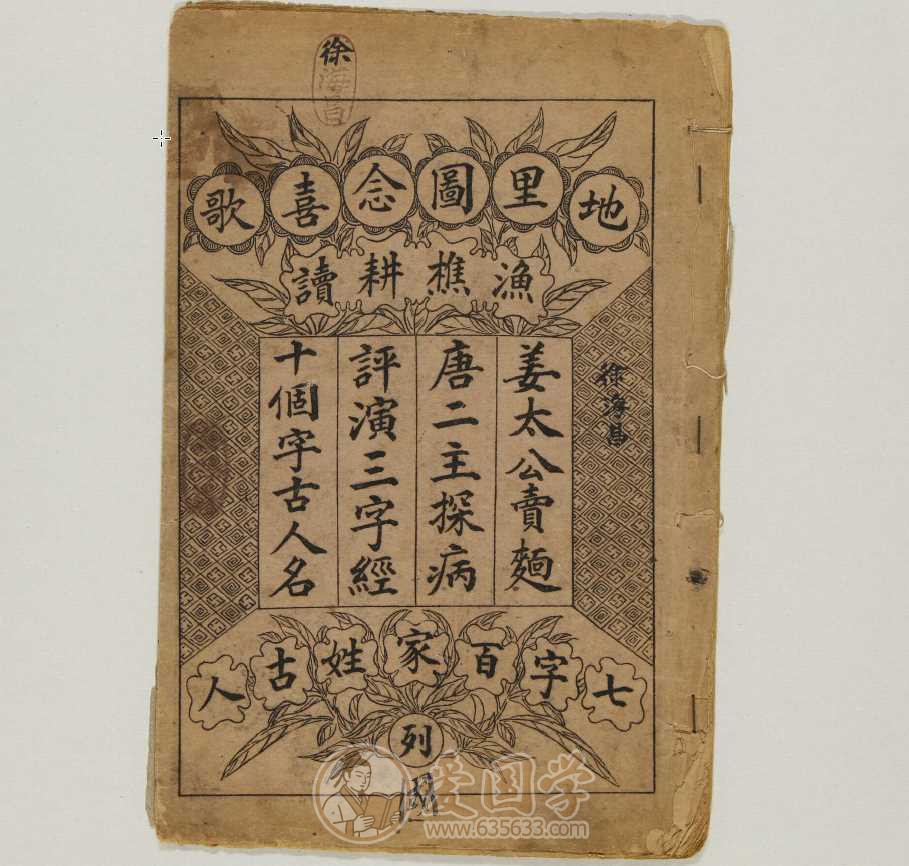 徐海昌
地里圖念喜歌
漁樵耕讀
姜太公賣麵
唐二主探病
評演三字經
十個字古人名
徐海昌
七字百家姓古人
列
國
爱国学
www.635633.com